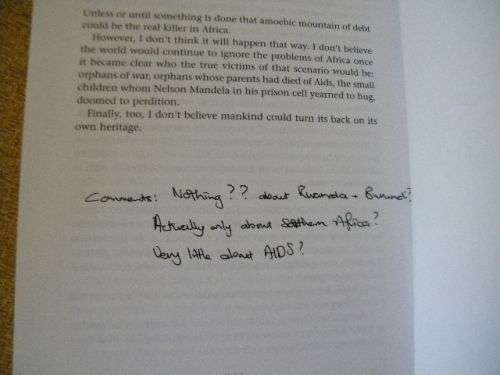 Unless or until something is done that amoebic mountain of debt
could be the real killer in Africa.
However, I don't think it will happen that way. I don't believe
the world would continue to ignore the problems of Africa once
it became clear who the true victims of that scenario would be:
orphans of war, orphans whose parents had died of Aids, the small
children whom Nelson Mandela in his prison cell yearned to hug,
doomed to perdition.
Finally, too, I don't believe mankind could turn its back on its
own heritage.
Comments: Nothing?? about Rwanda + Burundi?
Actually only about Southern Africa?
Very little about AIDS?